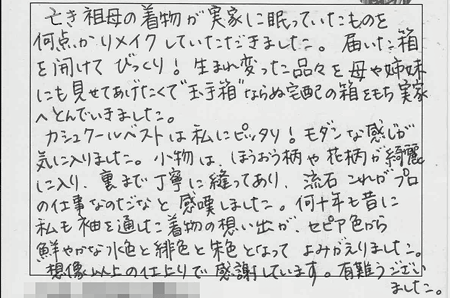 亡き祖母の着物が実家に眠っていたものを
何点かリメイクしていただきました。届いた箱
を開けてびっくり！生まれ変った品々を母や姉妹
にも見せてあげたくて"玉手箱"ならぬ宅配の箱をもち実家
へとんでいきました。
カシュクールベストは私にピッタリ！モダンな感じが
気に入りました。小物は、ほうおう柄や花柄が綺麗
に入り、裏まで丁寧に縫ってあり、流石これがプロ
の仕事なのだなと感嘆しました。何十年も昔に
私も袖を通した着物の想い出が、セピア色から
鮮やかな水色と緋色と朱色となってよみがえりました。
想像以上の仕上りで感謝しています。有難うござい
ました。